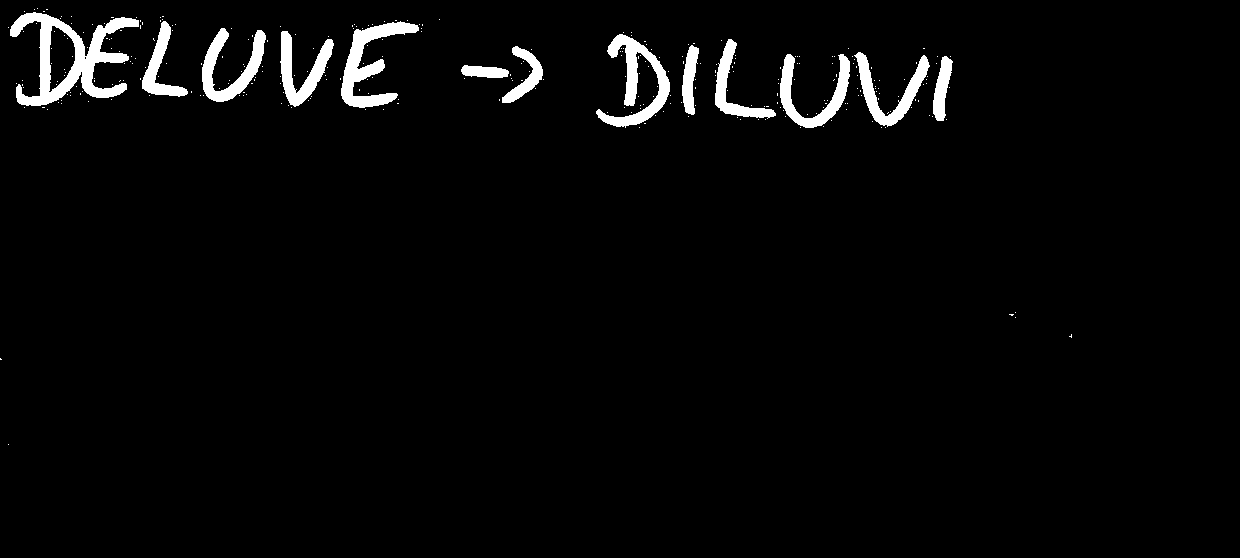 DELUVE → DILUVI